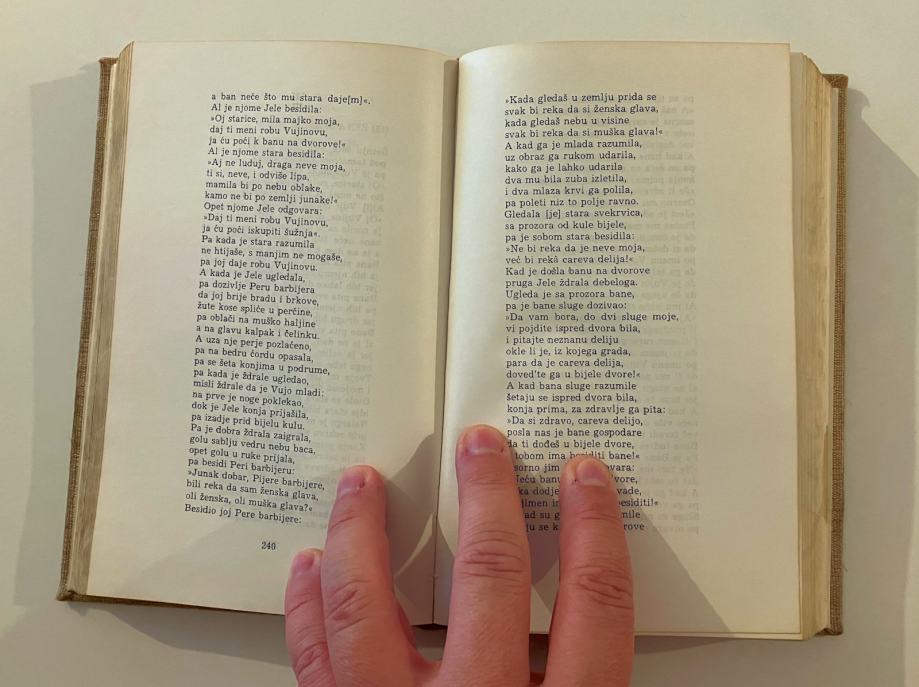 a ban neće što mu stara daje[m]«.
Al je njome Jele besidila:
»Oj starice, mila majko moja,
daj ti meni robu Vujinovu,
ja ću poći k banu na dvorove!«
Al je njome stara besidila:
»Aj ne luduj, draga neve moja,
ti si, neve, i odviše lipa,
mamila bi po nebu oblake,
kamo ne bi po zemlji junake!«
Opet njome Jele odgovara:
»Daj ti meni robu Vujinovu,
ja ću poći iskupiti šužnja«.
Pa kada je stara razumila
ne htijaše, s manjim ne mogaše,
pa joj daje robu Vujinovu.
A kada je Jele ugledala,
pa dozivlje Peru barbijera
da joj brije bradu i brkove,
žute kose spliće u perčine,
pa oblači na muško haljine
a na glavu kalpak i čelinku.
A uza nje perje pozlaćeno,
pa na bedru ćordu opasala,
pa se šeta konjima u podrume,
pa kada je ždrale ugledao,
misli ždrale da je Vujo mladi:
na prve je noge poklekao,
dok je Jele konja prijašila,
pa izadje prid bijelu kulu.
Pa je dobra ždrala zaigrala,
golu sablju vedru nebu baca,
opet golu u ruke prijala,
pa besidi Peri barbijeru:
»Junak dobar, Pijere barbijere,
bili reka da sam ženska glava,
oli ženska, oli muška glava?«
Besidio joj Pere barbijere:
240
»Kada gledaš u zemlju prida se
svak bi reka da si ženska glava,
kada gledaš nebu u visine
svak bi reka da si muška glava!«
A kad ga je mlada razumila,
uz obraz ga rukom udarila,
kako ga je lahko udarila
dva mu bila zuba izletila,
i dva mlaza krvi ga polila,
pa poleti niz to polje ravno.
Gledala [je] stara svekrvica,
sa prozora od kule bijele,
pa je sobom stara besidila:
»Ne bi reka da je neve moja,
već bi rekâ careva delija!«
Kad je došla banu na dvorove
pruga Jele ždrala debeloga.
Ugleda je sa prozora bane,
pa je bane sluge dozivao:
»Da vam bora, do dvi sluge moje,
vi pojdite ispred dvora bila,
i pitajte neznanu deliju
okle li je, iz kojega grada,
para da je careva delija,
doved'te ga u bijele dvore!«
A kad bana sluge razumile
šetaju se ispred dvora bila,
konja prima, za zdravlje ga pita:
»Da si zdravo, careva delijo,
posla nas je bane gospodare
da ti dođeš u bijele dvore,
tobom ima besiditi bane!«
jim
banu
dodje
besiditi!«
su
se